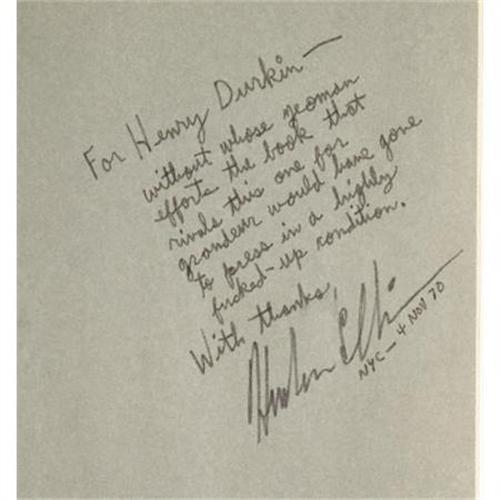 For Henry Durkin—
without whose yeoman
efforts the book that
rivals this one for
grandeur would have gone
to press in a highly
fucked-up condition.
With thanks,
Harlan Ellison
NYC – 4 NOV 70